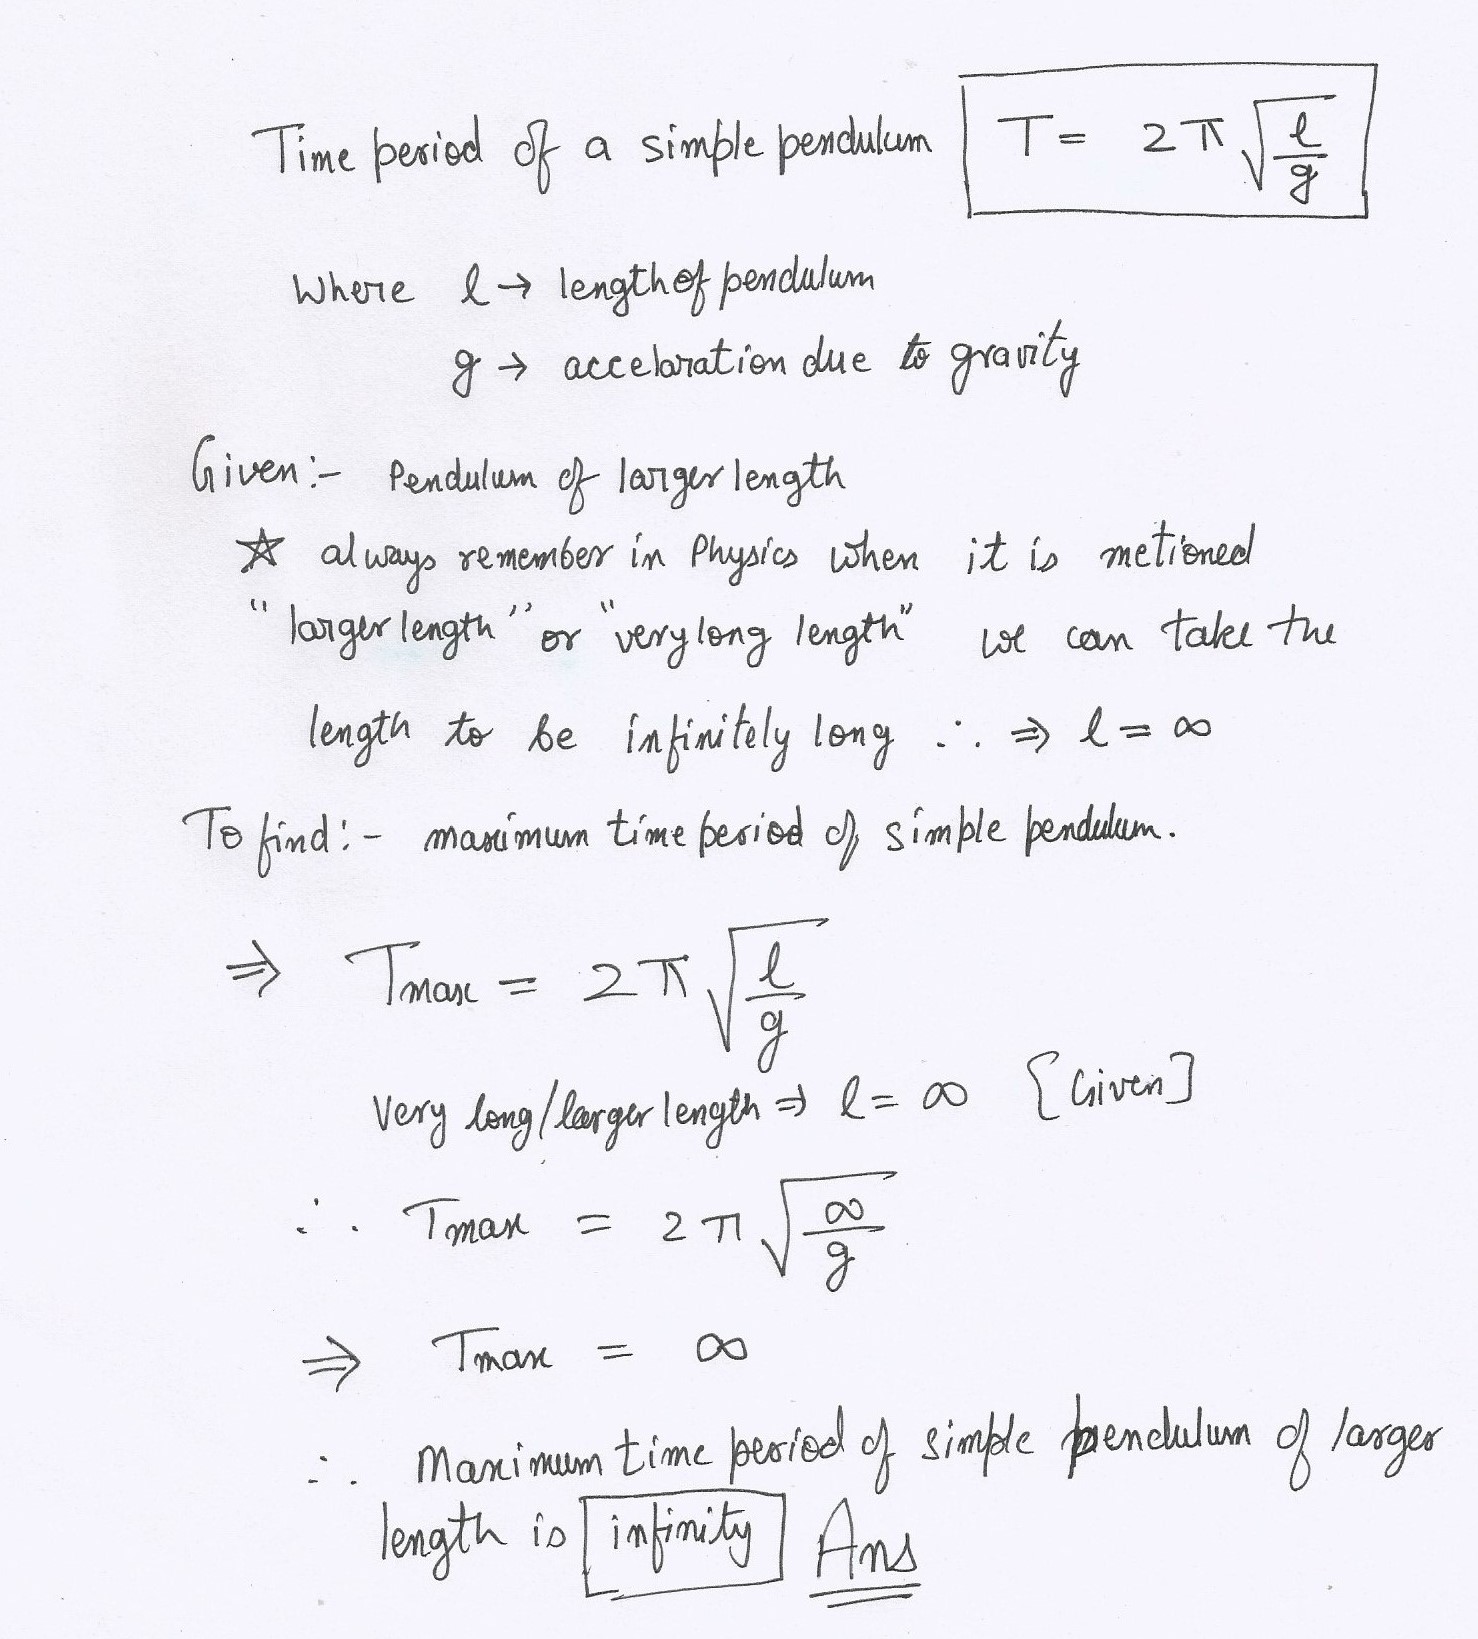 Time period of a simple pendulum T = 2π√(l/g)
Where l → length of pendulum
g → accelaration due to gravity
Given:- Pendulum of larger length
☆ always remember in Physics when it is metioned
"larger length" or "very long length" we can take the
length to be infinitely long ∴ ⇒ l = ∞
To find:- maximum time period of simple pendulum.
⇒ Tmax = 2π√(l/g)
Very long/larger length ⇒ l = ∞ {Given]
∴ Tmax = 2π√(∞/g)
⇒ Tmax = ∞
∴ Maximum time period of simple pendulum of larger
length is infinity Ans